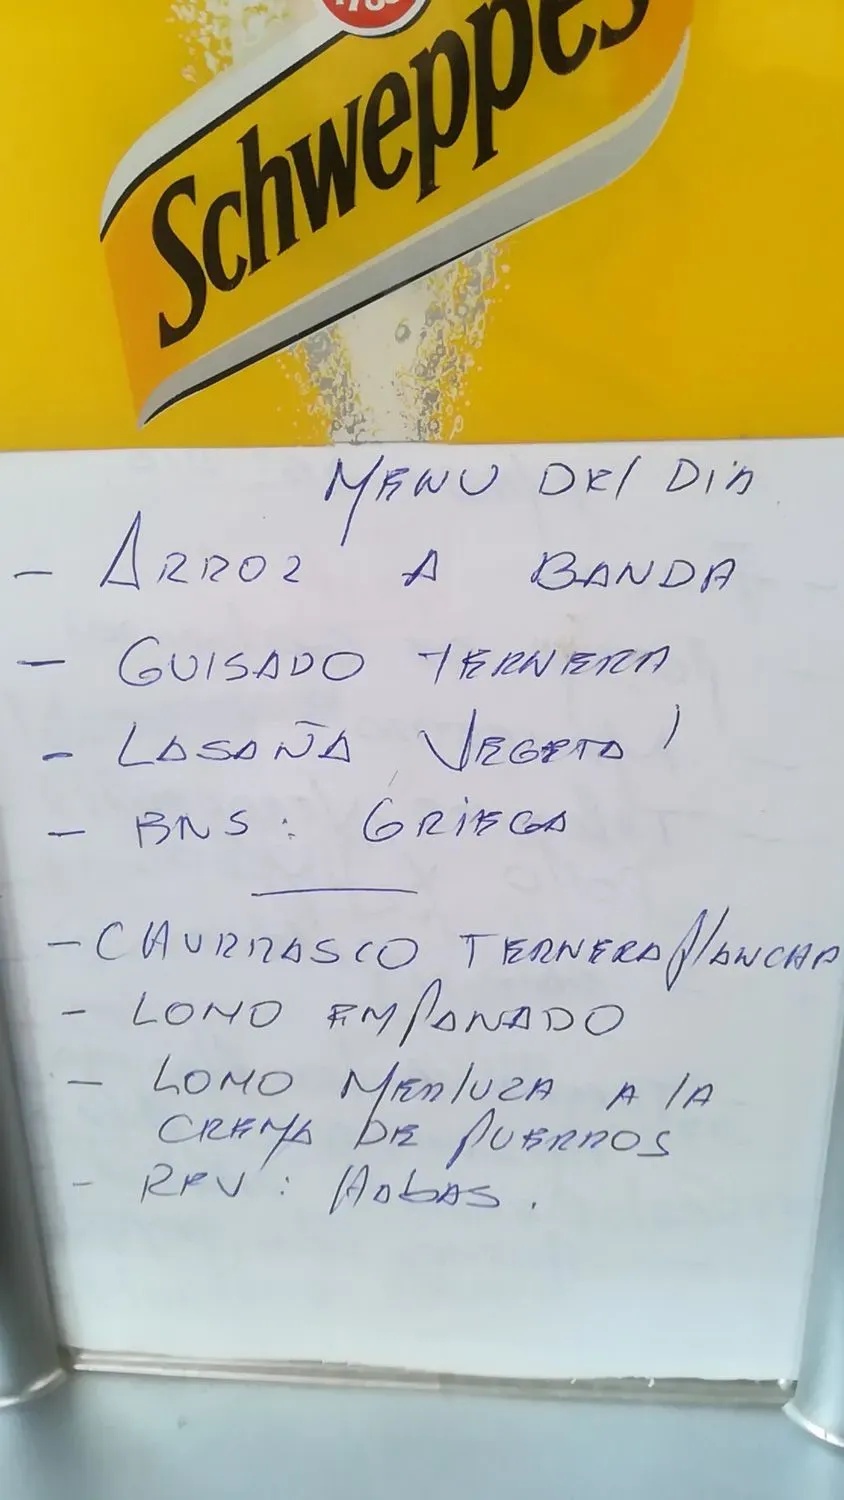 1783
Schweppes
MENU DEl DiA
- ARROZ A BANDA
- GUISADO TERNERA
- LASAÑA VEGETAl
- ENS: GRiEGA
- CHURRASCO TERNERA PlANCHA
- LOMO EMPANADO
- LOMO MERlUZA A lA
CREMA DE PUERROS
- REV: HAbAS.